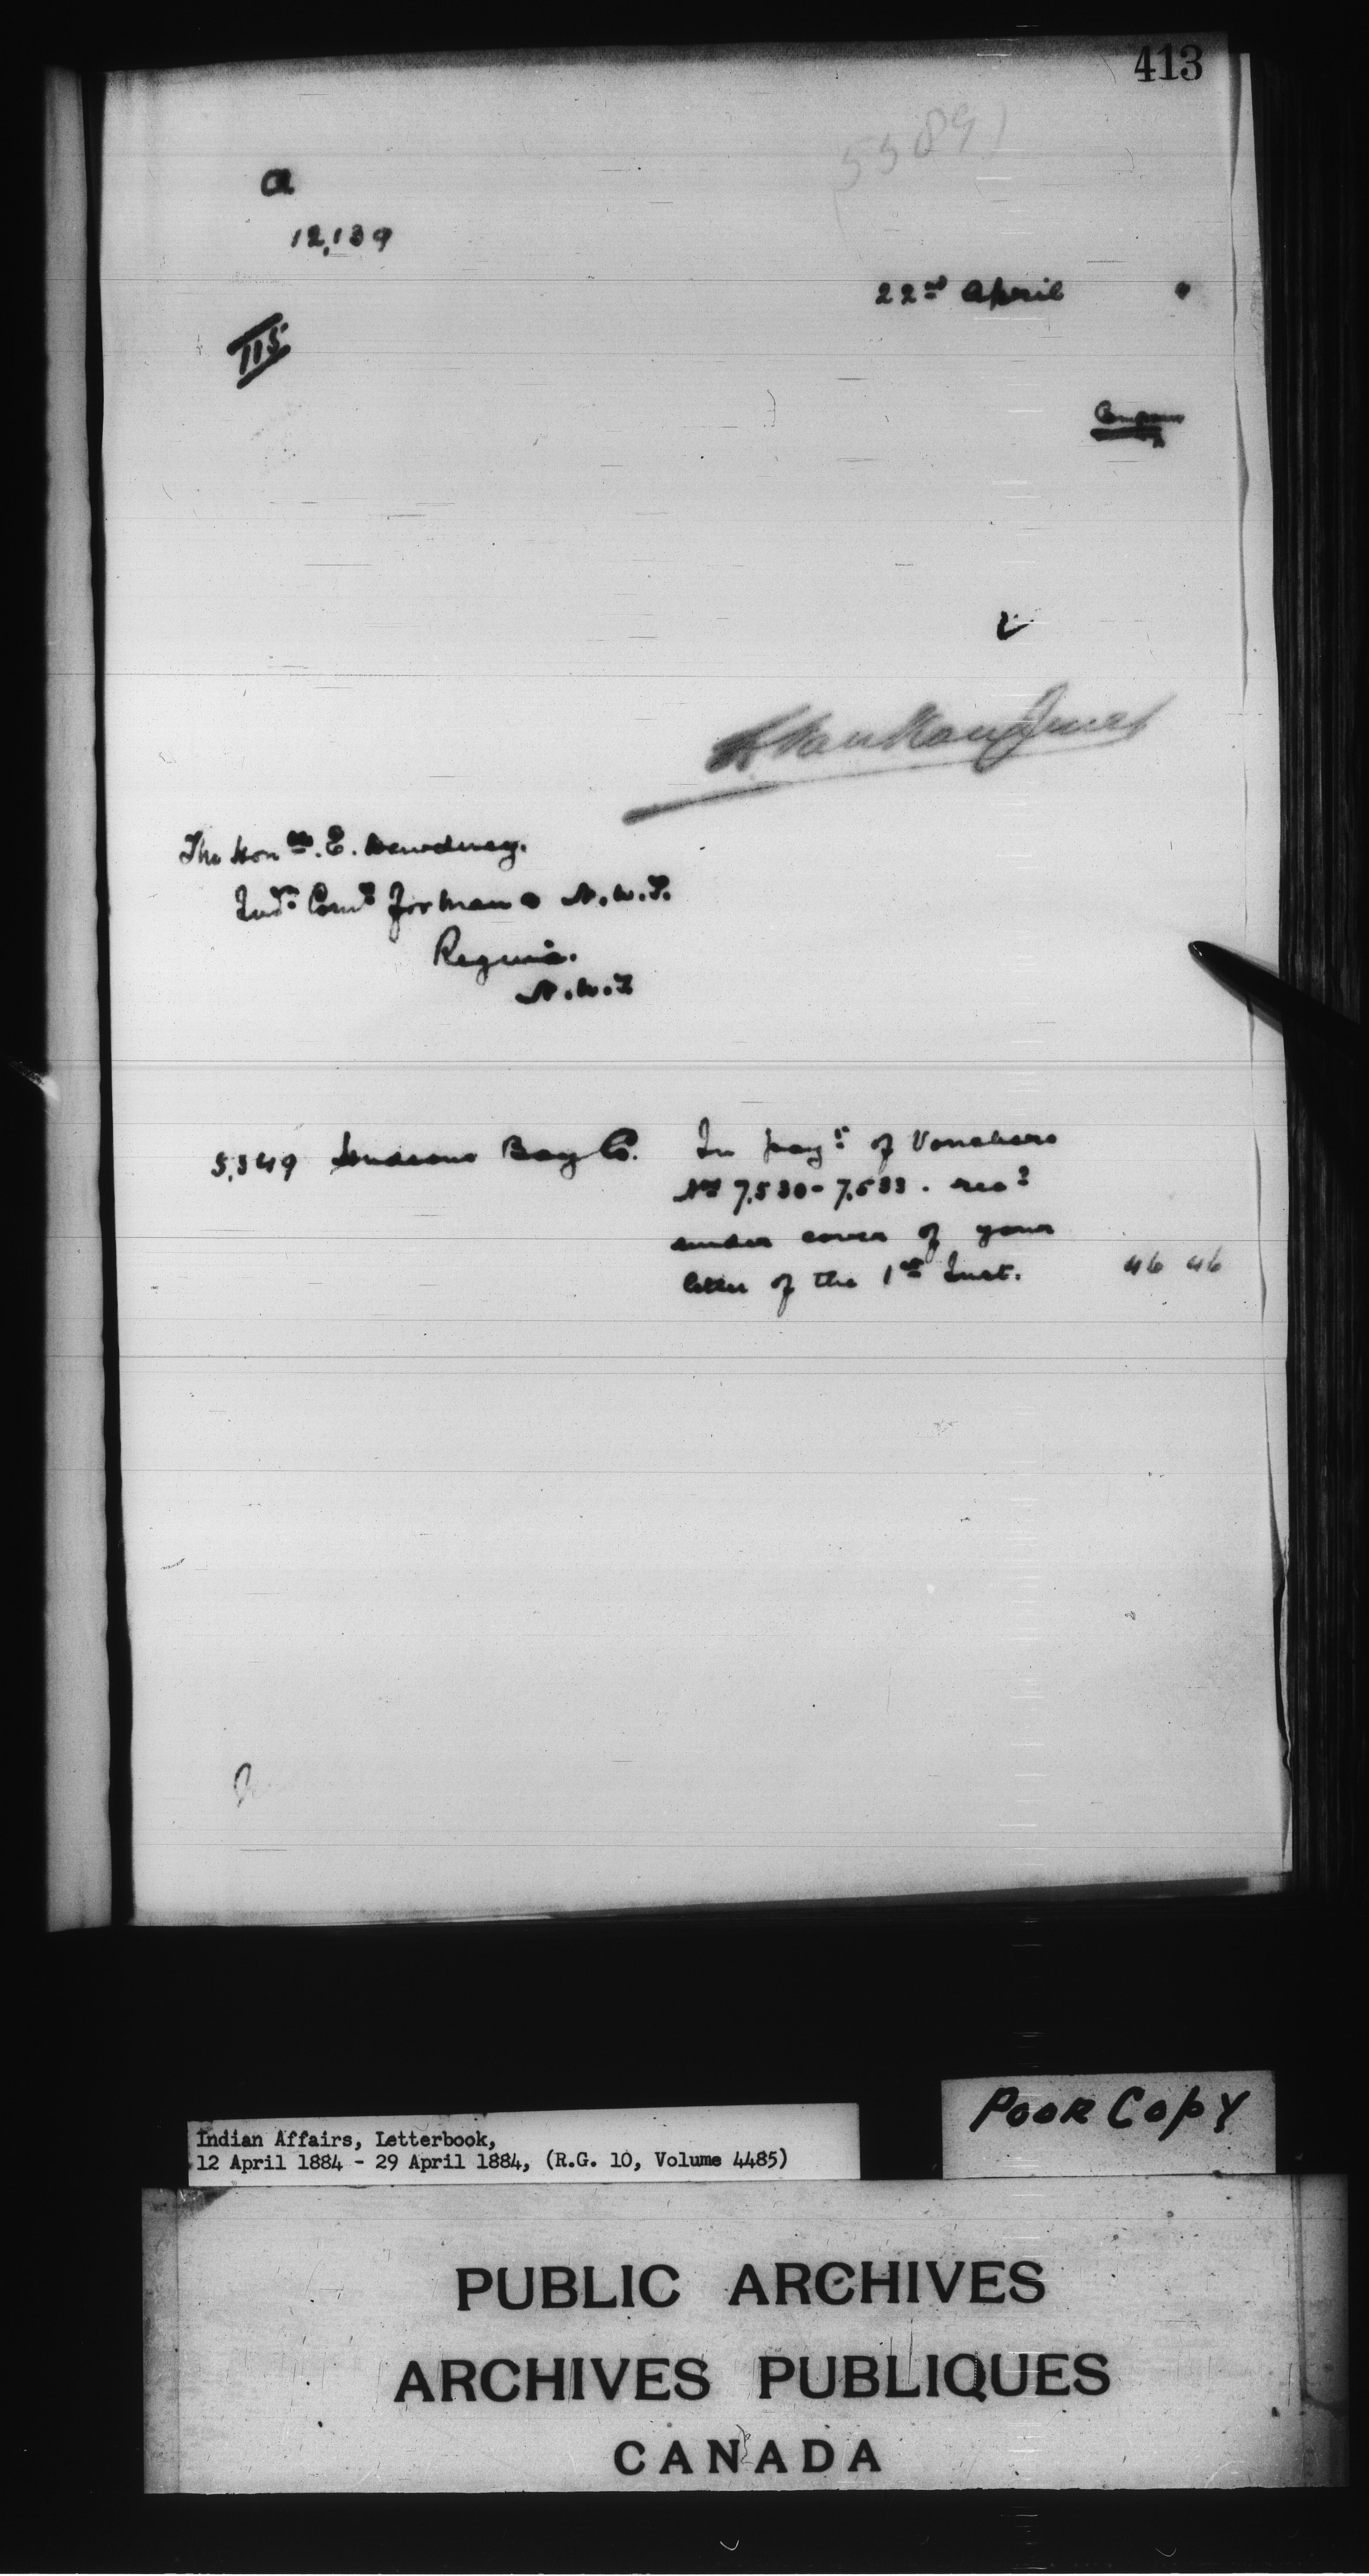 413
5589
a
12,139
22nd April
115
L. VanKoughnet
The Honble. E. Dewdney.
Indn Comr for Man & N.W.T.
Regina.
N.W.T
5,349 Hudsons Bay Co. In payt of Vouchers
Nos 7,530 - 7,533. recd
under cover of your
letter of the 1st Inst. 46 46
Poor Copy
Indian Affairs, Letterbook,
12 April 1884 - 29 April 1884, (R.G. 10, Volume 4485)
PUBLIC ARCHIVES
ARCHIVES PUBLIQUES
CANADA